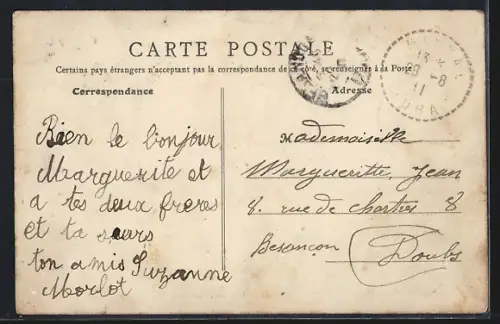 CARTE POSTALE
Certains pays étrangers n'acceptant pas la correspondance de ce côté, se renseigner à la Poste
Correspondance
Adresse
13
28 -8
11
JURA
Bien le bonjour
Marguerite et
a tes deux freres
et ta seurs
ton amis Suzanne
Morlot
Mademoiselle
Margueritte Jean
8. rue de chartres 8
Besançon
Doubs